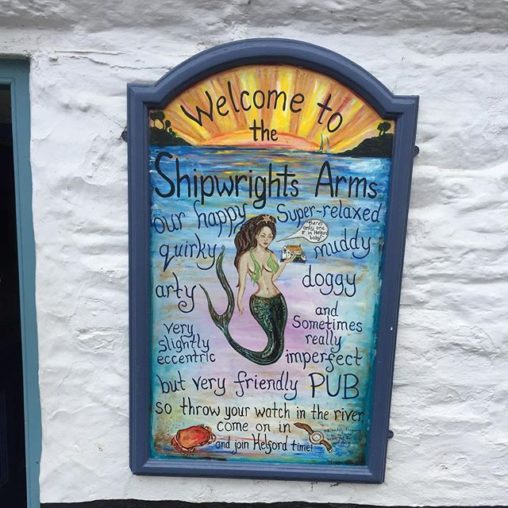 Welcome to
the
Shipwrights Arms
our happy Super-relaxed
quirky muddy
arty doggy
very slightly eccentric
and Sometimes really imperfect
but very friendly PUB
so throw your watch in the river
come on in
and join Helford time!